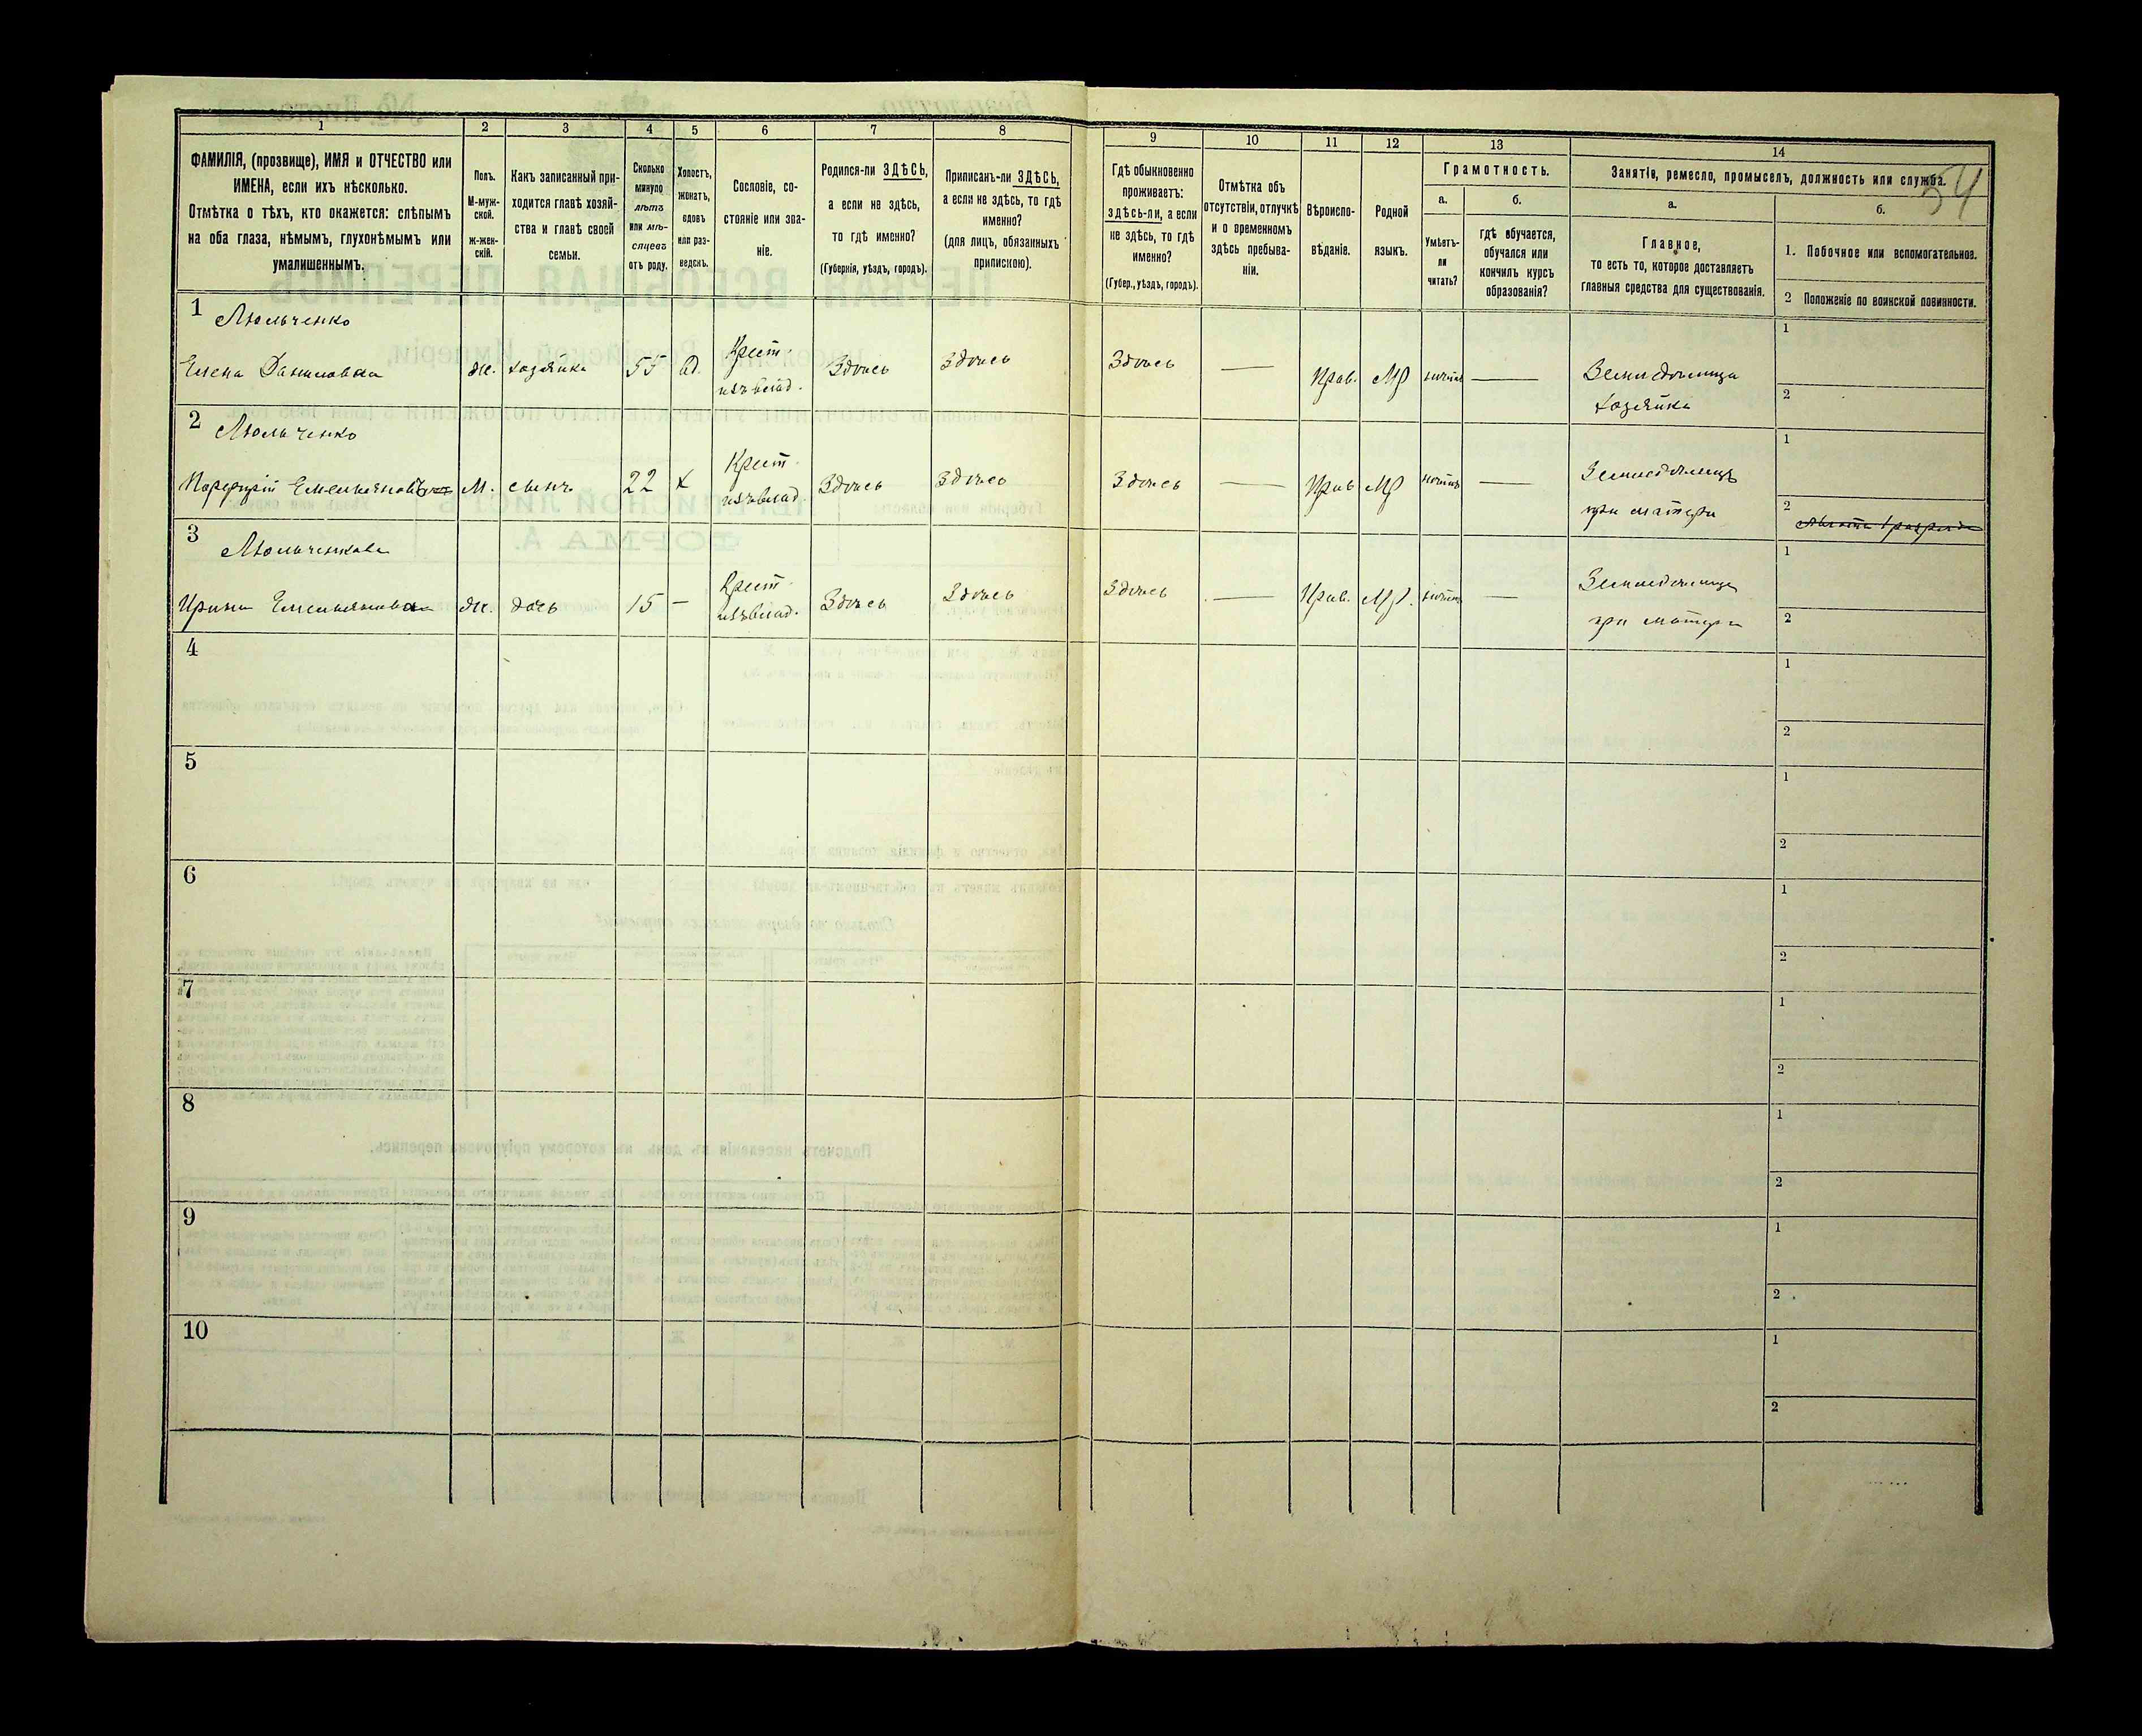 54
1 2 3 4 5 6 7 8 9 10 11 12 13 14
ФАМИЛІЯ, (прозвище), ИМЯ и ОТЧЕСТВО или
ИМЕНА, если ихъ нѣсколько.
Отмѣтка о тѣхъ, кто окажется: слѣпымъ
на оба глаза, нѣмымъ, глухонѣмымъ или
умалишеннымъ.
Полъ.
М-муж-
ской.
ж-жен-
скій.
Какъ записанный при-
ходится главѣ хозяй-
ства и главѣ своей
семьи.
Сколько
минуло
лѣтъ
или мѣ-
сяцевъ
отъ роду.
Холостъ,
женатъ,
вдовъ
или раз-
веденъ.
Сословіе, со-
стояніе или зва-
ніе.
Родился-ли ЗДѢСЬ,
а если не здѣсь,
то гдѣ именно?
(Губернія, уѣздъ, городъ).
Приписанъ-ли ЗДѢСЬ,
а если не здѣсь, то гдѣ
именно?
(для лицъ, обязанныхъ
припискою).
Гдѣ обыкновенно
проживаетъ:
здѣсь-ли, а если
не здѣсь, то гдѣ
именно?
(Губер., уѣздъ, городъ).
Отмѣтка объ
отсутствіи, отлучкѣ
и о временномъ
здѣсь пребыва-
ніи.
Вѣроиспо-
вѣданіе.
Родной
языкъ.
Грамотность.
а.
Умѣетъ-
ли
читать?
б.
гдѣ обучается,
обучался или
кончилъ курсъ
образованія?
Занятіе, ремесло, промыселъ, должность или служба.
а.
Главное,
то есть то, которое доставляетъ
главныя средства для существованія.
б.
1. Побочное или вспомогательное.
2 Положеніе по воинской повинности.
1 Люльченко
Елена Даниловна ж. хозяйка 55 вд. Крест. изъ влад. Здѣсь Здѣсь Здѣсь — Прав. МР нѣтъ — Земледѣлица хозяйка
1
2
2 Люльченко
Емельяновъ М. сынъ 22 х Крест. изъ влад Здѣсь Здѣсь Здѣсь — Прав МР нѣтъ — Земледѣлецъ при матери
1
2
3 Люльченкова
Ирина Емельянова ж. дочь 15 — Крест. изъ влад. Здѣсь Здѣсь Здѣсь — Прав. МР. нѣтъ — Земледѣлица при матери
1
2
4
1
2
5
1
2
6
1
2
7
1
2
8
1
2
9
1
2
10
1
2